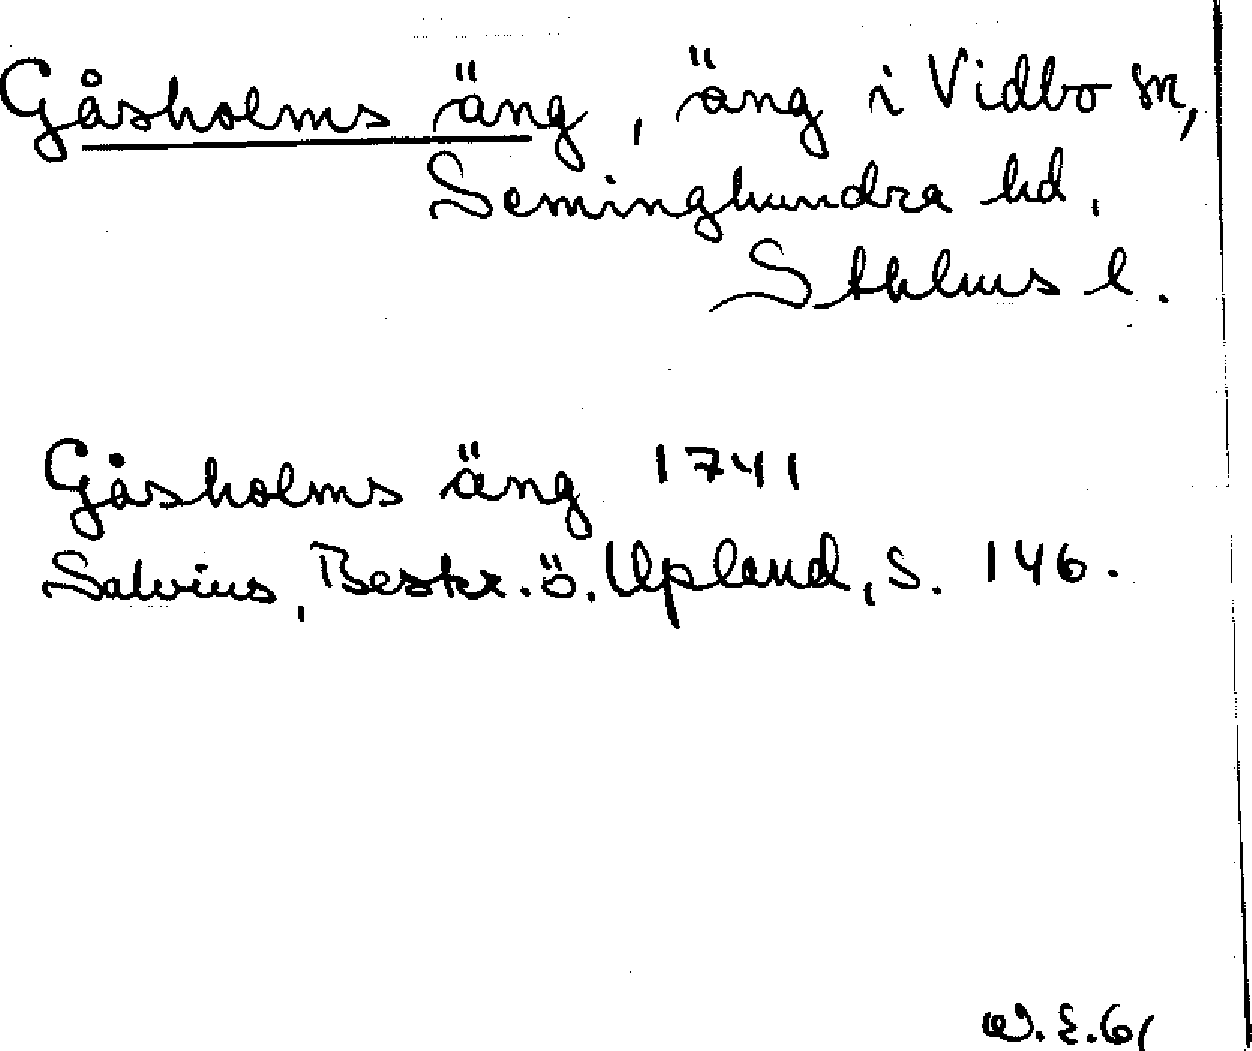 Gåsholms äng, äng i Vidbo sn,
Seminghundra hd,
Sthlms l.
Gåsholms äng 1741
Salvius, Beskr. ö. Upland, s. 146.
W.E.61